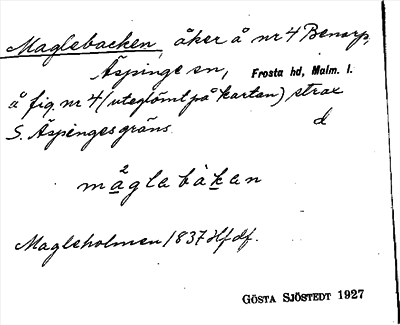 Maglebacken, åker å nr 4 Benarp,
Äspinge sn, Frosta hd, Malm. l.
å fig. nr 4 (uteglömt på kartan) strax
S. Äspinges gräns. d
2
maglabakan
Magleholmen 1837 Hf df.
GÖSTA SJÖSTEDT 1927